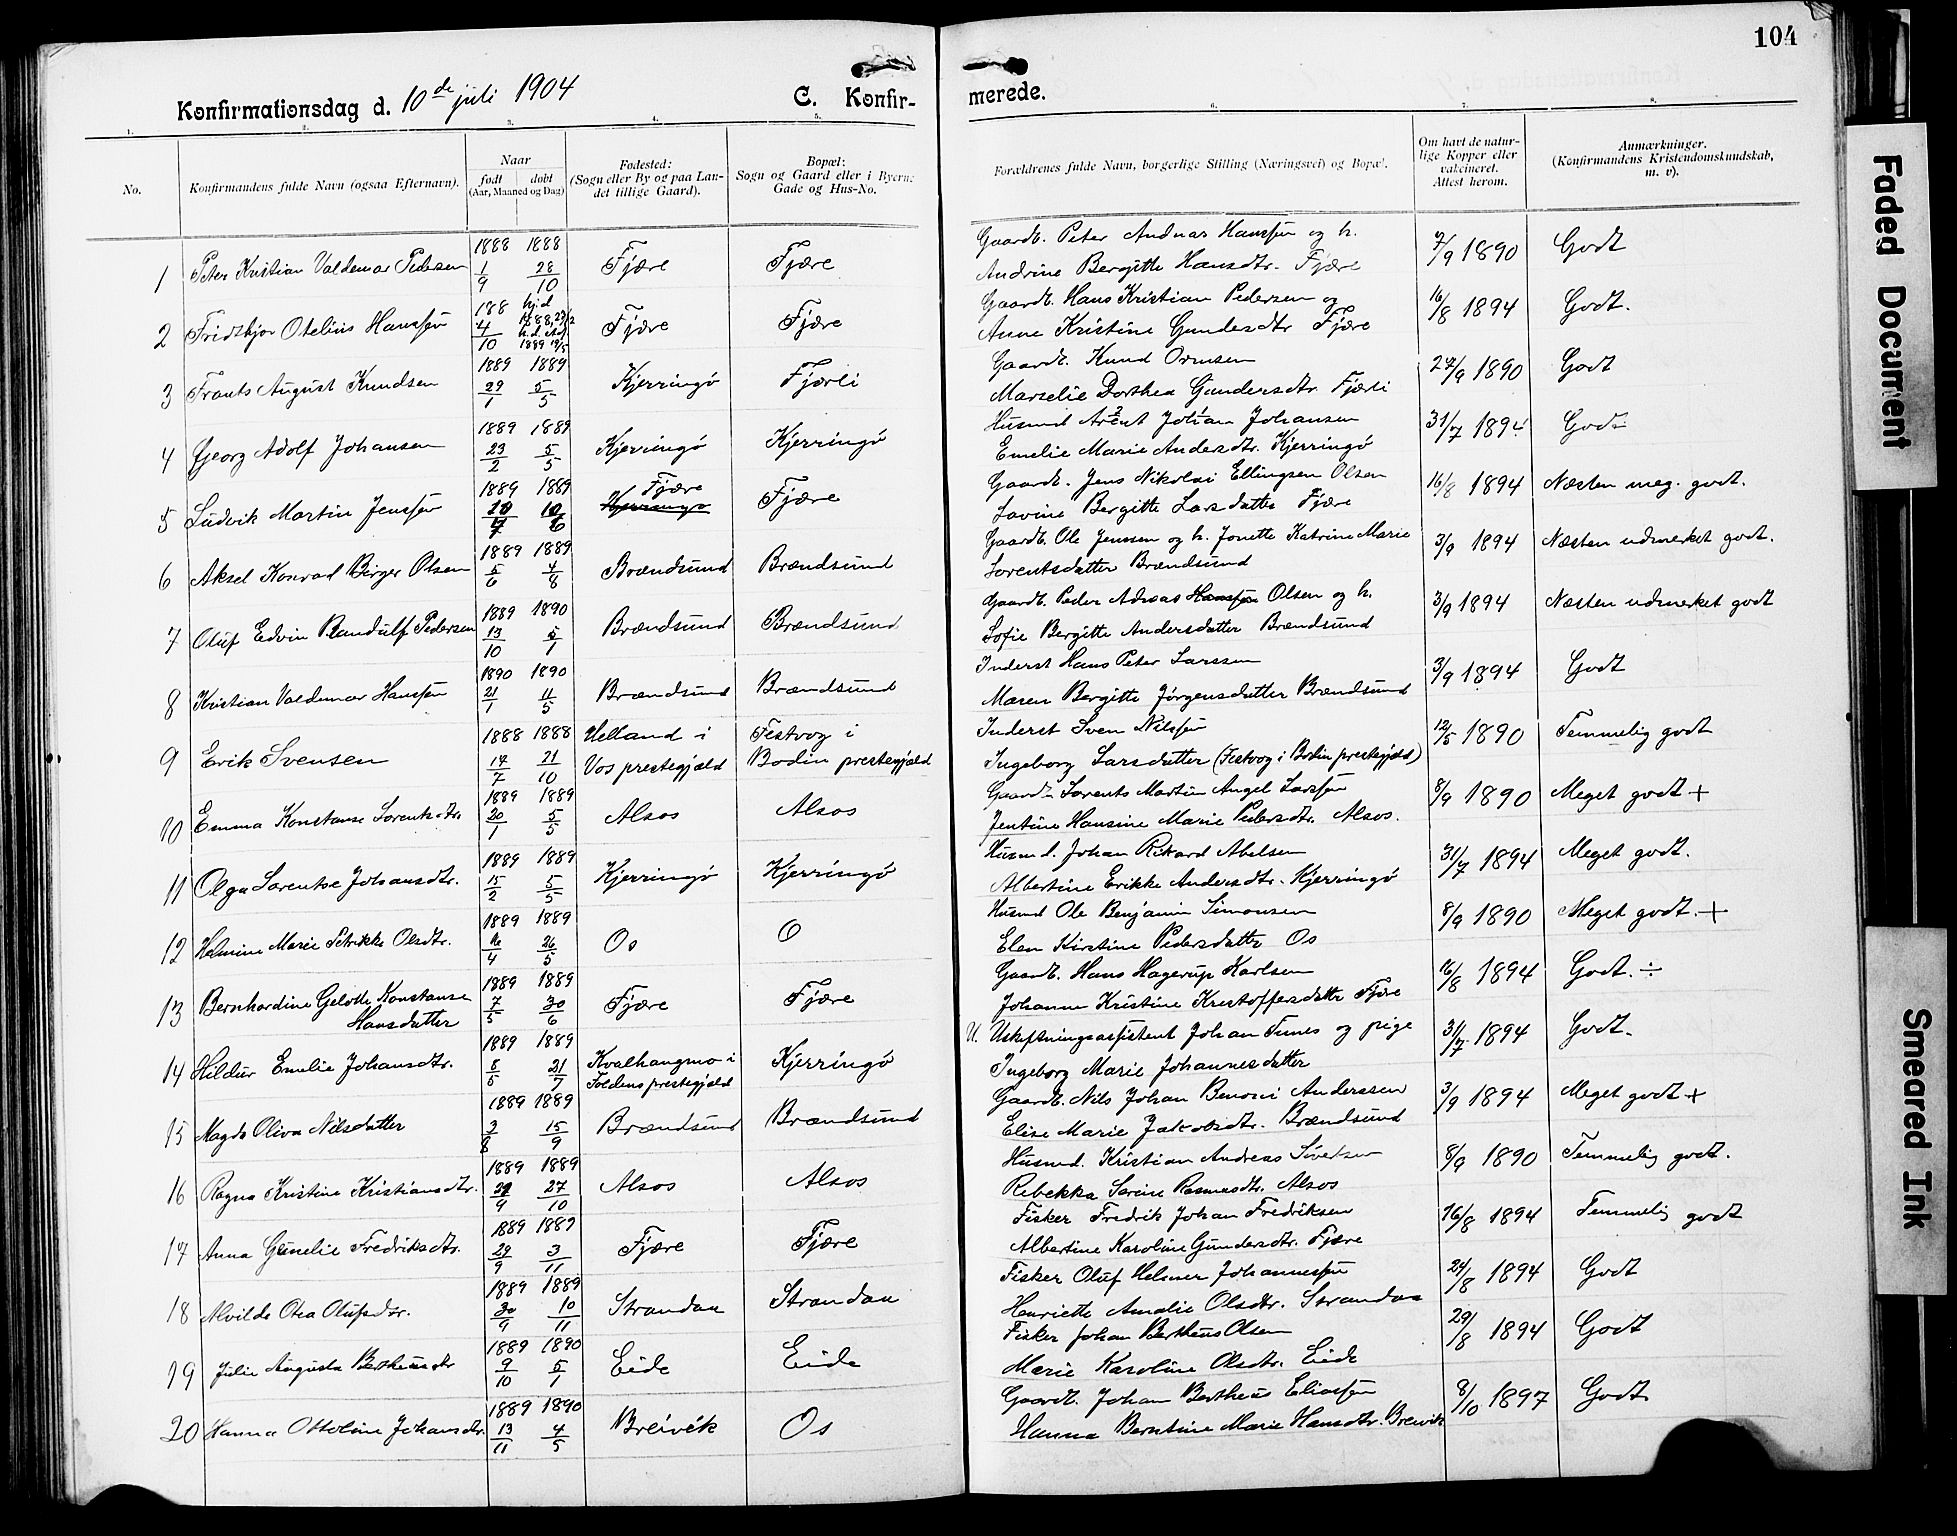 104
Konfirmationsdag d. 10de juli 1904
C. Konfir-
merede.
1. 2. 3. 4. 5. 6. 7. 8.
No.
Konfirmandens fulde Navn (ogsaa Efternavn).
Naar
født døbt
(Aar, Maaned og Dag)
Fødested:
(Sogn eller By og paa Lan-
det tillige Gaard).
Bopæl:
Sogn og Gaard eller i Byern:
Gade og Hus-No.
Forældrenes fulde Navn, borgerlige Stilling (Næringsvei) og Bopæl.
Om havt de natur-
lige Kopper eller
vakcineret.
Attest herom.
Anmærkninger.
(Konfirmandens Kristendomskundskab,
m. v).
1 Peter Kristian Valdemar Pedersen 1888 1/9 1888 28/10 Fjære Fjære
Gaardb. Peter Andreas Hanssøn og h.
Andrine Bergitte Hansdtr. Fjære 7/9 1890 Godt
2 Fridthjor Otelius Hanssøn 188 4/10 hj.d 1888 Fjære Fjære
Gaardb. Hans Kristian Pedersen og
Anne Kristine Gundersdtr Fjære 16/8 1894 Godt.
3 Frants August Knudsen 1889 29/1 1889 5/5 Kjerringø Fjærli
Gaardb. Knud Ormsen
Marselie Dorthea Gundersdtr. Fjærli 27/9 1890 Godt
4 Georg Adolf Johansen 1889 23/2 1889 5/5 Kjerringø Kjerringø
Husmd Arent Johan Johansen
Emelie Marie Andersdtr. Kjerringø 31/7 1894 Godt
5 Ludvik Martin Jenssøn 1889 1889 10/6 Fjære Kjerringø Fjære
Gaardb. Jens Nikolai Ellingsen Olsen
Lovine Bergitte Larsdatter Fjære 16/8 1894 Næsten meg. godt.
6 Aksel Konrad Birger Olsen 1889 5/6 1889 4/8 Brændsund Brændsund
Gaardb. Ole Jenssen og h. Jonette Katrine Marie
Lorentsdatter Brændsund 3/9 1894 Næsten udmerket godt.
7 Oluf Edvin Randulf Pedersen 1889 13/10 1890 5/1 Brændsund Brændsund
Gaardb. Peder Adreas Hanssøn Olsen og h.
Sofie Bergitte Andersdatter Brændsund 3/9 1894 Næsten udmerket godt
8 Kristian Valdemar Hanssøn 1890 21/1 1890 11/5 Brændsund Brændsund
Inderst Hans Peter Larssen
Maren Bergitte Jørgensdatter Brændsund 3/9 1894 Godt
9 Erik Svensen 1888 14/7 1888 21/10 Helland i Festvog i
Vos prestegjæld Bodin prestegjæld
Inderst Sven Nilssøn
Ingeborg Larsdatter (Festvog i Bodin prestegjæld) 12/5 1890 Temmelig godt
10 Emma Konstanse Lorentsdtr. 1889 20/1 1889 5/5 Alsos Alsos
Gaardb. Lorents Martin Angel Larssøn
Jentine Hansine Marie Pedersdtr. Alsos. 8/9 1890 Meget godt +
11 Olga Lorentse Johansdtr. 1889 15/2 1889 5/5 Kjerringø Kjerringø
Husmd. Johan Rikard Abelsen
Albertine Erikke Andersdtr. Kjerringø 31/7 1894 Meget godt.
12 Helmine Marie Petrikke Olsdtr. 1889 1889 26/5 Os O
Husmd Ole Benjamin Simonsen
Elen Kirstine Pedersdatter Os 8/9 1890 Meget godt. +
13 Bernhardine Gelotte Konstanse 1889 7/5 1889 30/6 Fjære Fjære
Hansdatter
Gaardb. Hans Hagerup Karlsen
Johanne Kristine Kristoffersdatter Fjære 16/8 1894 Godt. ÷
14 Hildur Emelie Johansdtr. 1889 1889 21/7 Kvalhangmo i Kjerringø
Foldens prestegjæld
U. Udskiftningsassistent Johan Tunes og pige
Ingeborg Marie Johannesdatter 31/7 1894 Godt.
15 Magda Oliva Nilsdatter 1889 3/8 1889 15/9 Brændsund Brændsund
Gaardb. Nils Johan Benoni Anderssen
Elise Marie Jakobsdtr. Brændsund 3/9 1894 Meget godt +
16 Ragna Kristine Kristiansdtr. 1889 1889 27/10 Alsos Alsos
Husmd. Kristian Andreas Sivertsen
Rebekka Sorine Rasmusdtr. Alsos 8/9 1890 Temmelig godt.
17 Anna Gunelie Fredriksdtr. 1889 29/9 1889 3/11 Fjære Fjære
Fisker Fredrik Johan Fredriksen
Albertine Karoline Gundersdtr. Fjære 16/8 1894 Temmelig godt
18 Alvilde Otea Olufsdtr. 1889 30/9 1889 10/11 Strandaa Strandaa
Fisker Oluf Helmer Johannessøn
Henriette Amalie Olsdtr. Strandaa 24/8 1894 Godt
19 Julie Augusta Bertheusdtr 1889 9/10 1890 5/1 Eide Eide
Fisker Johan Bertheus Olsen
Marie Karoline Olsdtr. Eide 29/8 1894 Godt
20 Hanna Ottoline Johansdtr. 1889 13/11 1890 4/5 Breivik Os
Gaardb. Johan Bertheus Eliassøn
Hanna Berntine Marie Hansdtr. Breivik 8/10 1897 Godt
Faded Document
Smeared Ink